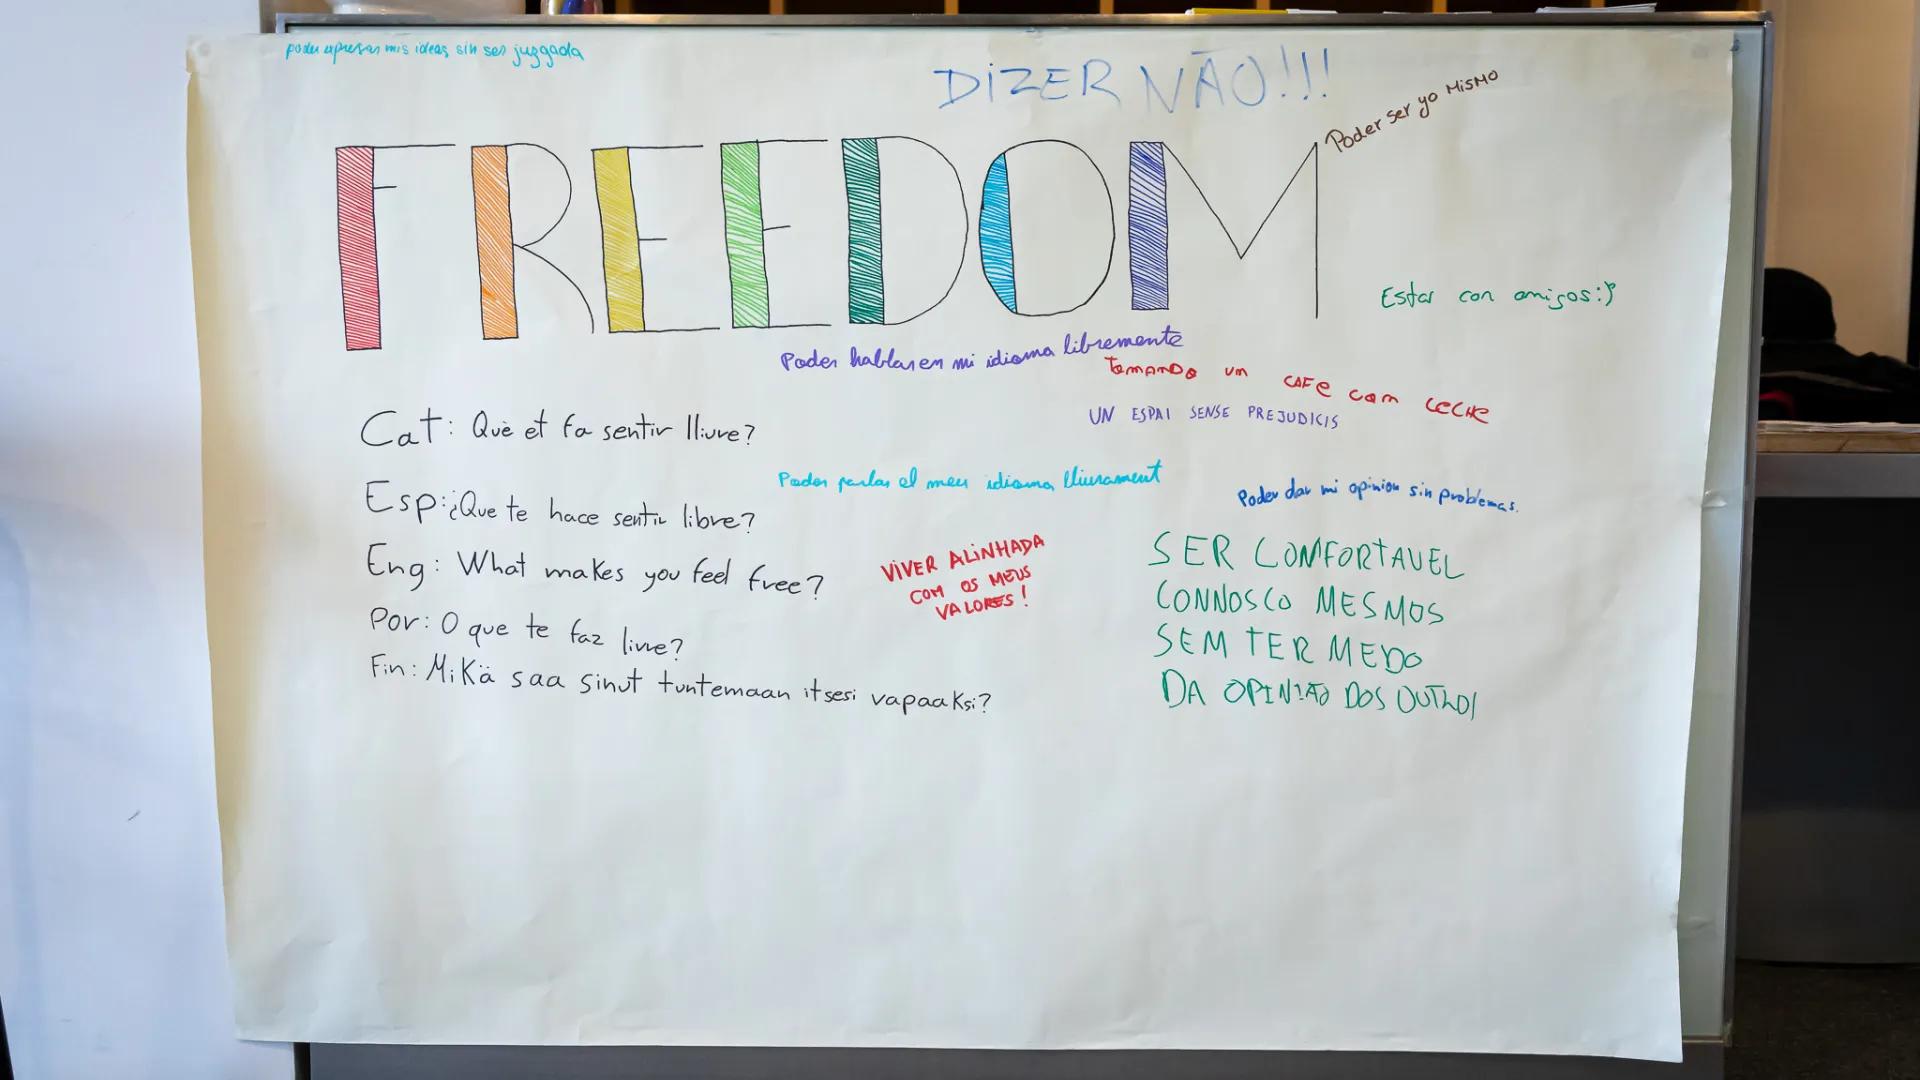 poder expresar mis ideas sin ser juzgada
DIZER NÃO!!!
Poder ser yo MISMO
FREEDOM
Estar con amigos:)
Poder hablar en mi idioma libremente
TOMANDO UN CAFE COM LECHE
UN ESPAI SENSE PREJUDICIS
Cat: Què et fa sentir lliure?
Poder parlar el meu idioma lliurament
Poder dar mi opinion sin problemas.
Esp: ¿Que te hace sentir libre?
Eng: What makes you feel free?
VIVER ALINHADA
COM OS MEUS
VALORES!
SER COMFORTAVEL
CONNOSCO MESMOS
SEM TER MEDO
DA OPINIÃO DOS OUTROS
Por: O que te faz livre?
Fin: Mikä saa sinut tuntemaan itsesi vapaaksi?